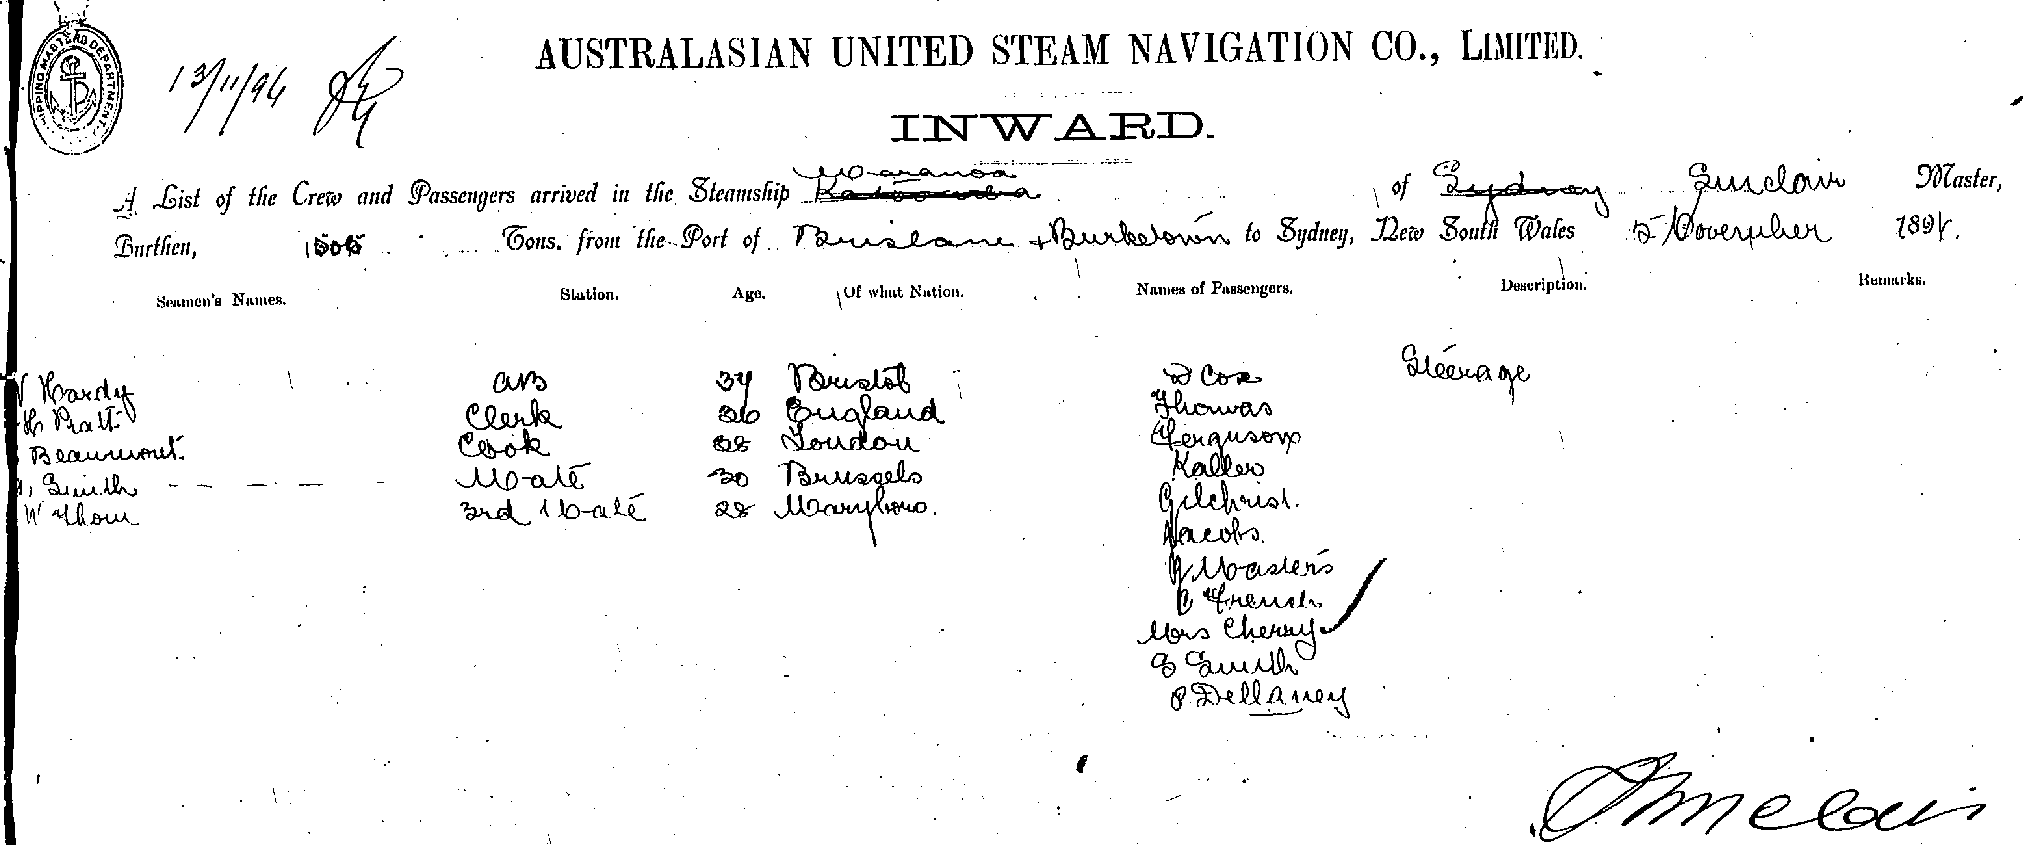 SHIPPING MASTERS DEPARTMENT.
13/11/94
AUSTRALASIAN UNITED STEAM NAVIGATION CO., LIMITED.
INWARD.
Maranoa
A List of the Crew and Passengers arrived in the Steamship Katoomba of Sydney Sinclair Master,
Burthen, 1505 Tons. from the Port of Brisbane & Burketown to Sydney, New South Wales 5 November 189
Seamen's Names. Station. Age. Of what Nation. Names of Passengers. Description. Remarks.
Hardy AB 34 Bristol D Cox Steerage
H Pratt Clerk 26 England Thomas
Beaumont. Cook 28 London Ferguson
Smith Mate 30 Brussels Kaller
W Thom 3rd Mate 28 Maryboro. Gilchrist.
Jacobs.
Masters
C French
Mrs Cherry
S Smith
P Dellaney
Sinclair